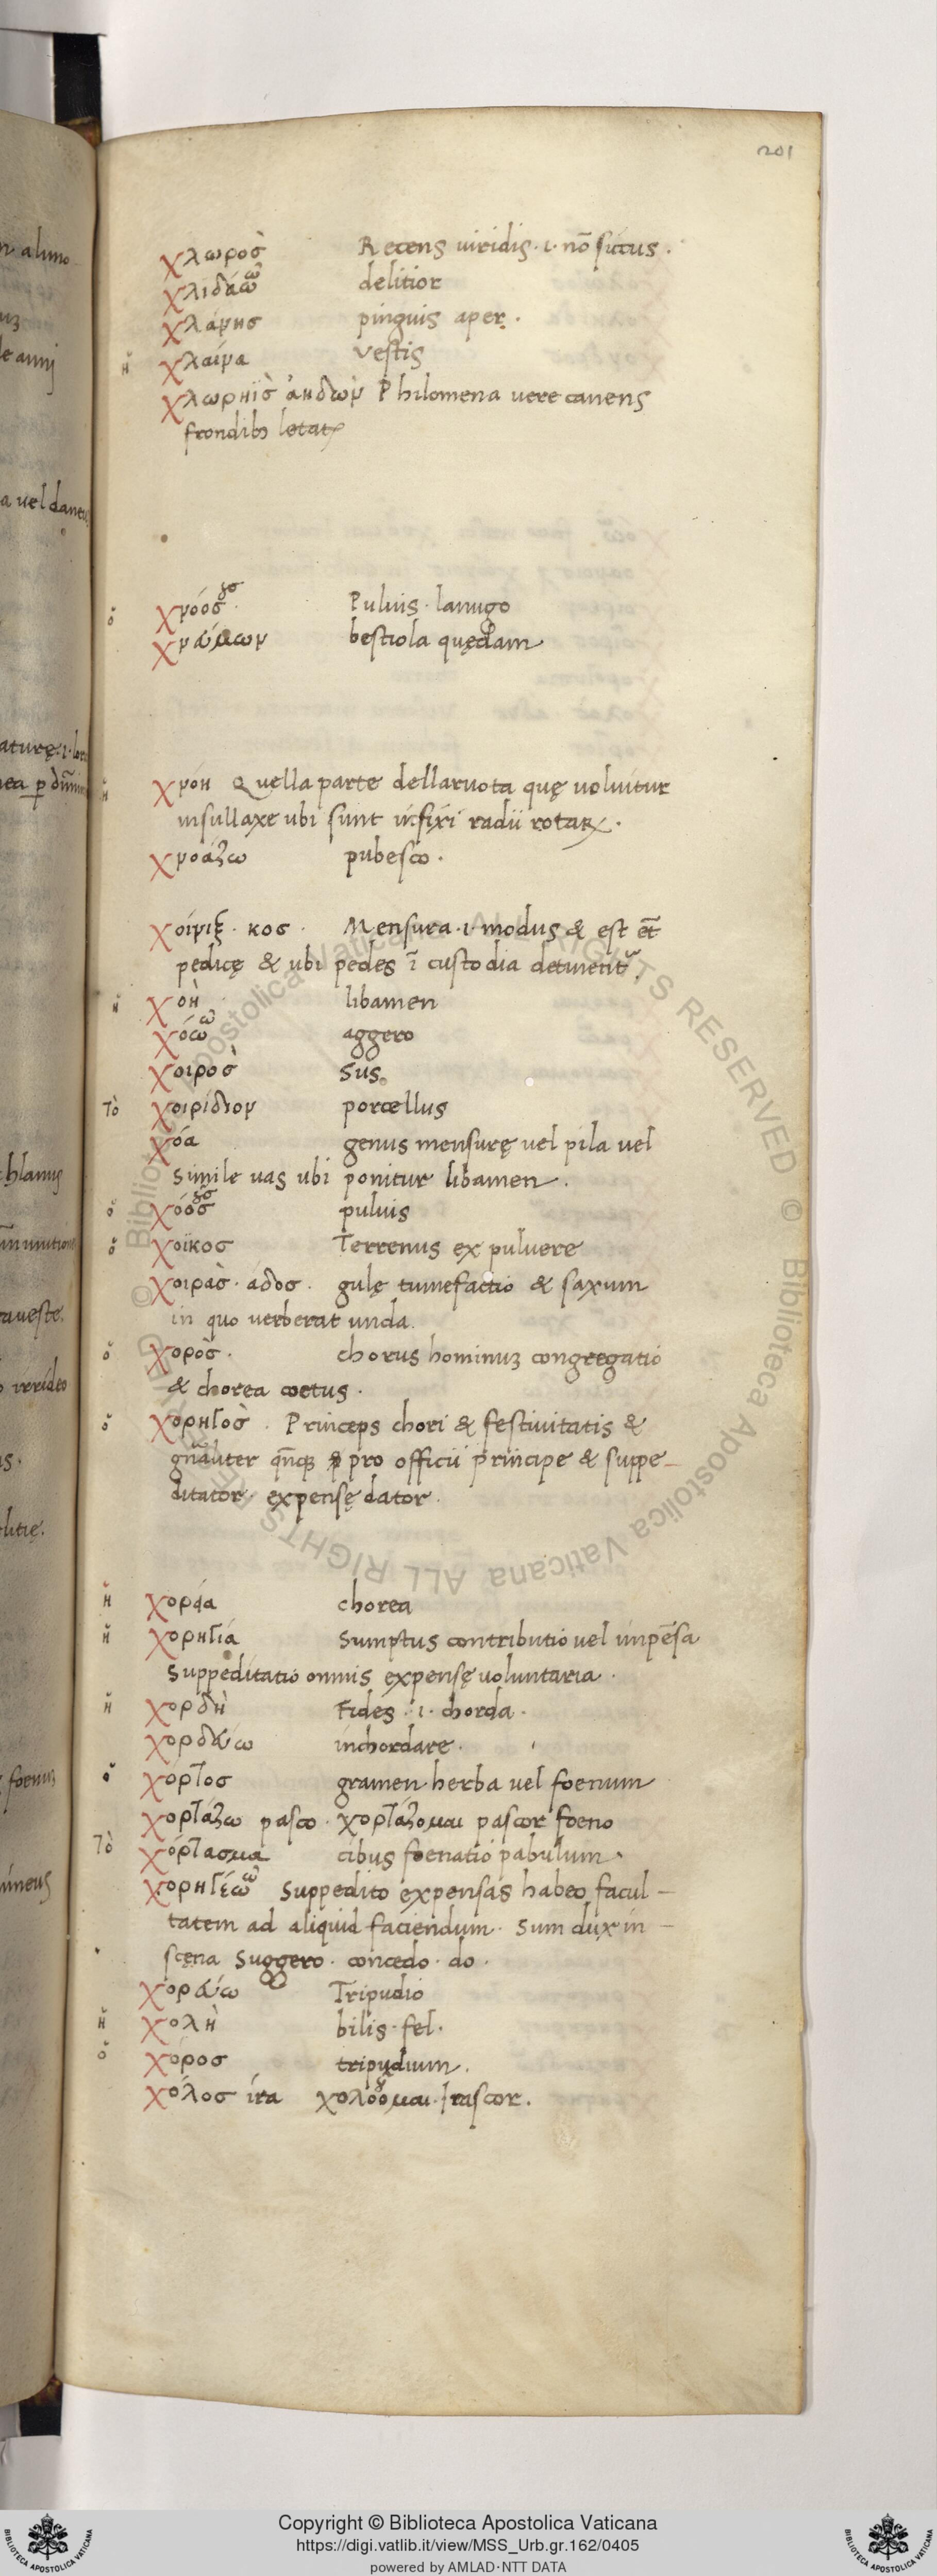 201
χλωροσ̀ Recens uiridis · ι · nō siccus ·
χλιδάω ῶ delitior
χλάνησ pinguis aper ·
ἡ χλαίνα Vestis
χλωρηϊσ̀ ἀηδὼν Philomena uere canens
frondibꝫ letatꝝ
ὁ χνόοσ γσ · Puluis · lanugo
χναύμων bestiola quędam
ἡ χνόη Quella parte dellaruota quę uoluitur
insullaxe ubi sunt infixi radii rotaꝝ ·
χνοάζω pubesco ·
χοίνιξ · κοσ · Mensura · ι · modus & est et̄
pedicę & ubi pedes ī custodia detinent᷑ ·
ἡ χοὴ libamen
χόω ῶ aggero
χοιροσ̀ Sus
τὸ χοιρίδιον porcellus
χόα genus mensurę uel pila uel
simile uas ubi ponitur libamen ·
ὁ χόοσ γσ puluis
ὁ χοϊκοσ Terrenus ex puluere
χοιρὰσ · άδοσ · gulę tumefactio & saxum
in quo verberat unda ·
ὁ χορὸσ · chorus hominuꝫ congregatio
& chorea coetus ·
ὁ χορηγοσ̀ · Princeps chori & festiuitatis &
gn̄aliter qn̄qꝫ pro officii principe & suppe
ditator · expensę dator ·
ἡ χορεία chorea
ἡ χορηγία Sumptus contributio uel impēsa
Suppeditatio omnis expensę uoluntaria ·
ἡ χορδὴ Fides · ι · chorda ·
χορδεύω inchordare ·
ὁ χόρτοσ gramen herba uel foenum
χορτάζω pasco · χορτάζομαι pascor foeno
τὸ χόρτασμα cibus foenatio pabulum ·
χορηγέω ῶ Suppedito expensas habeo facul-
tatem ad aliquid faciendum · Sum dux in -
scęna Suggero · concedo · do ·
χορεύω Tripudio
ἡ χολὴ bilis · fel ·
ὁ χόροσ tripudium ·
χόλοσ ira χολόομαι · Irascor ·
Copyright © Biblioteca Apostolica Vaticana
https://digi.vatlib.it/view/MSS_Urb.gr.162/0405
powered by AMLAD·NTT DATA